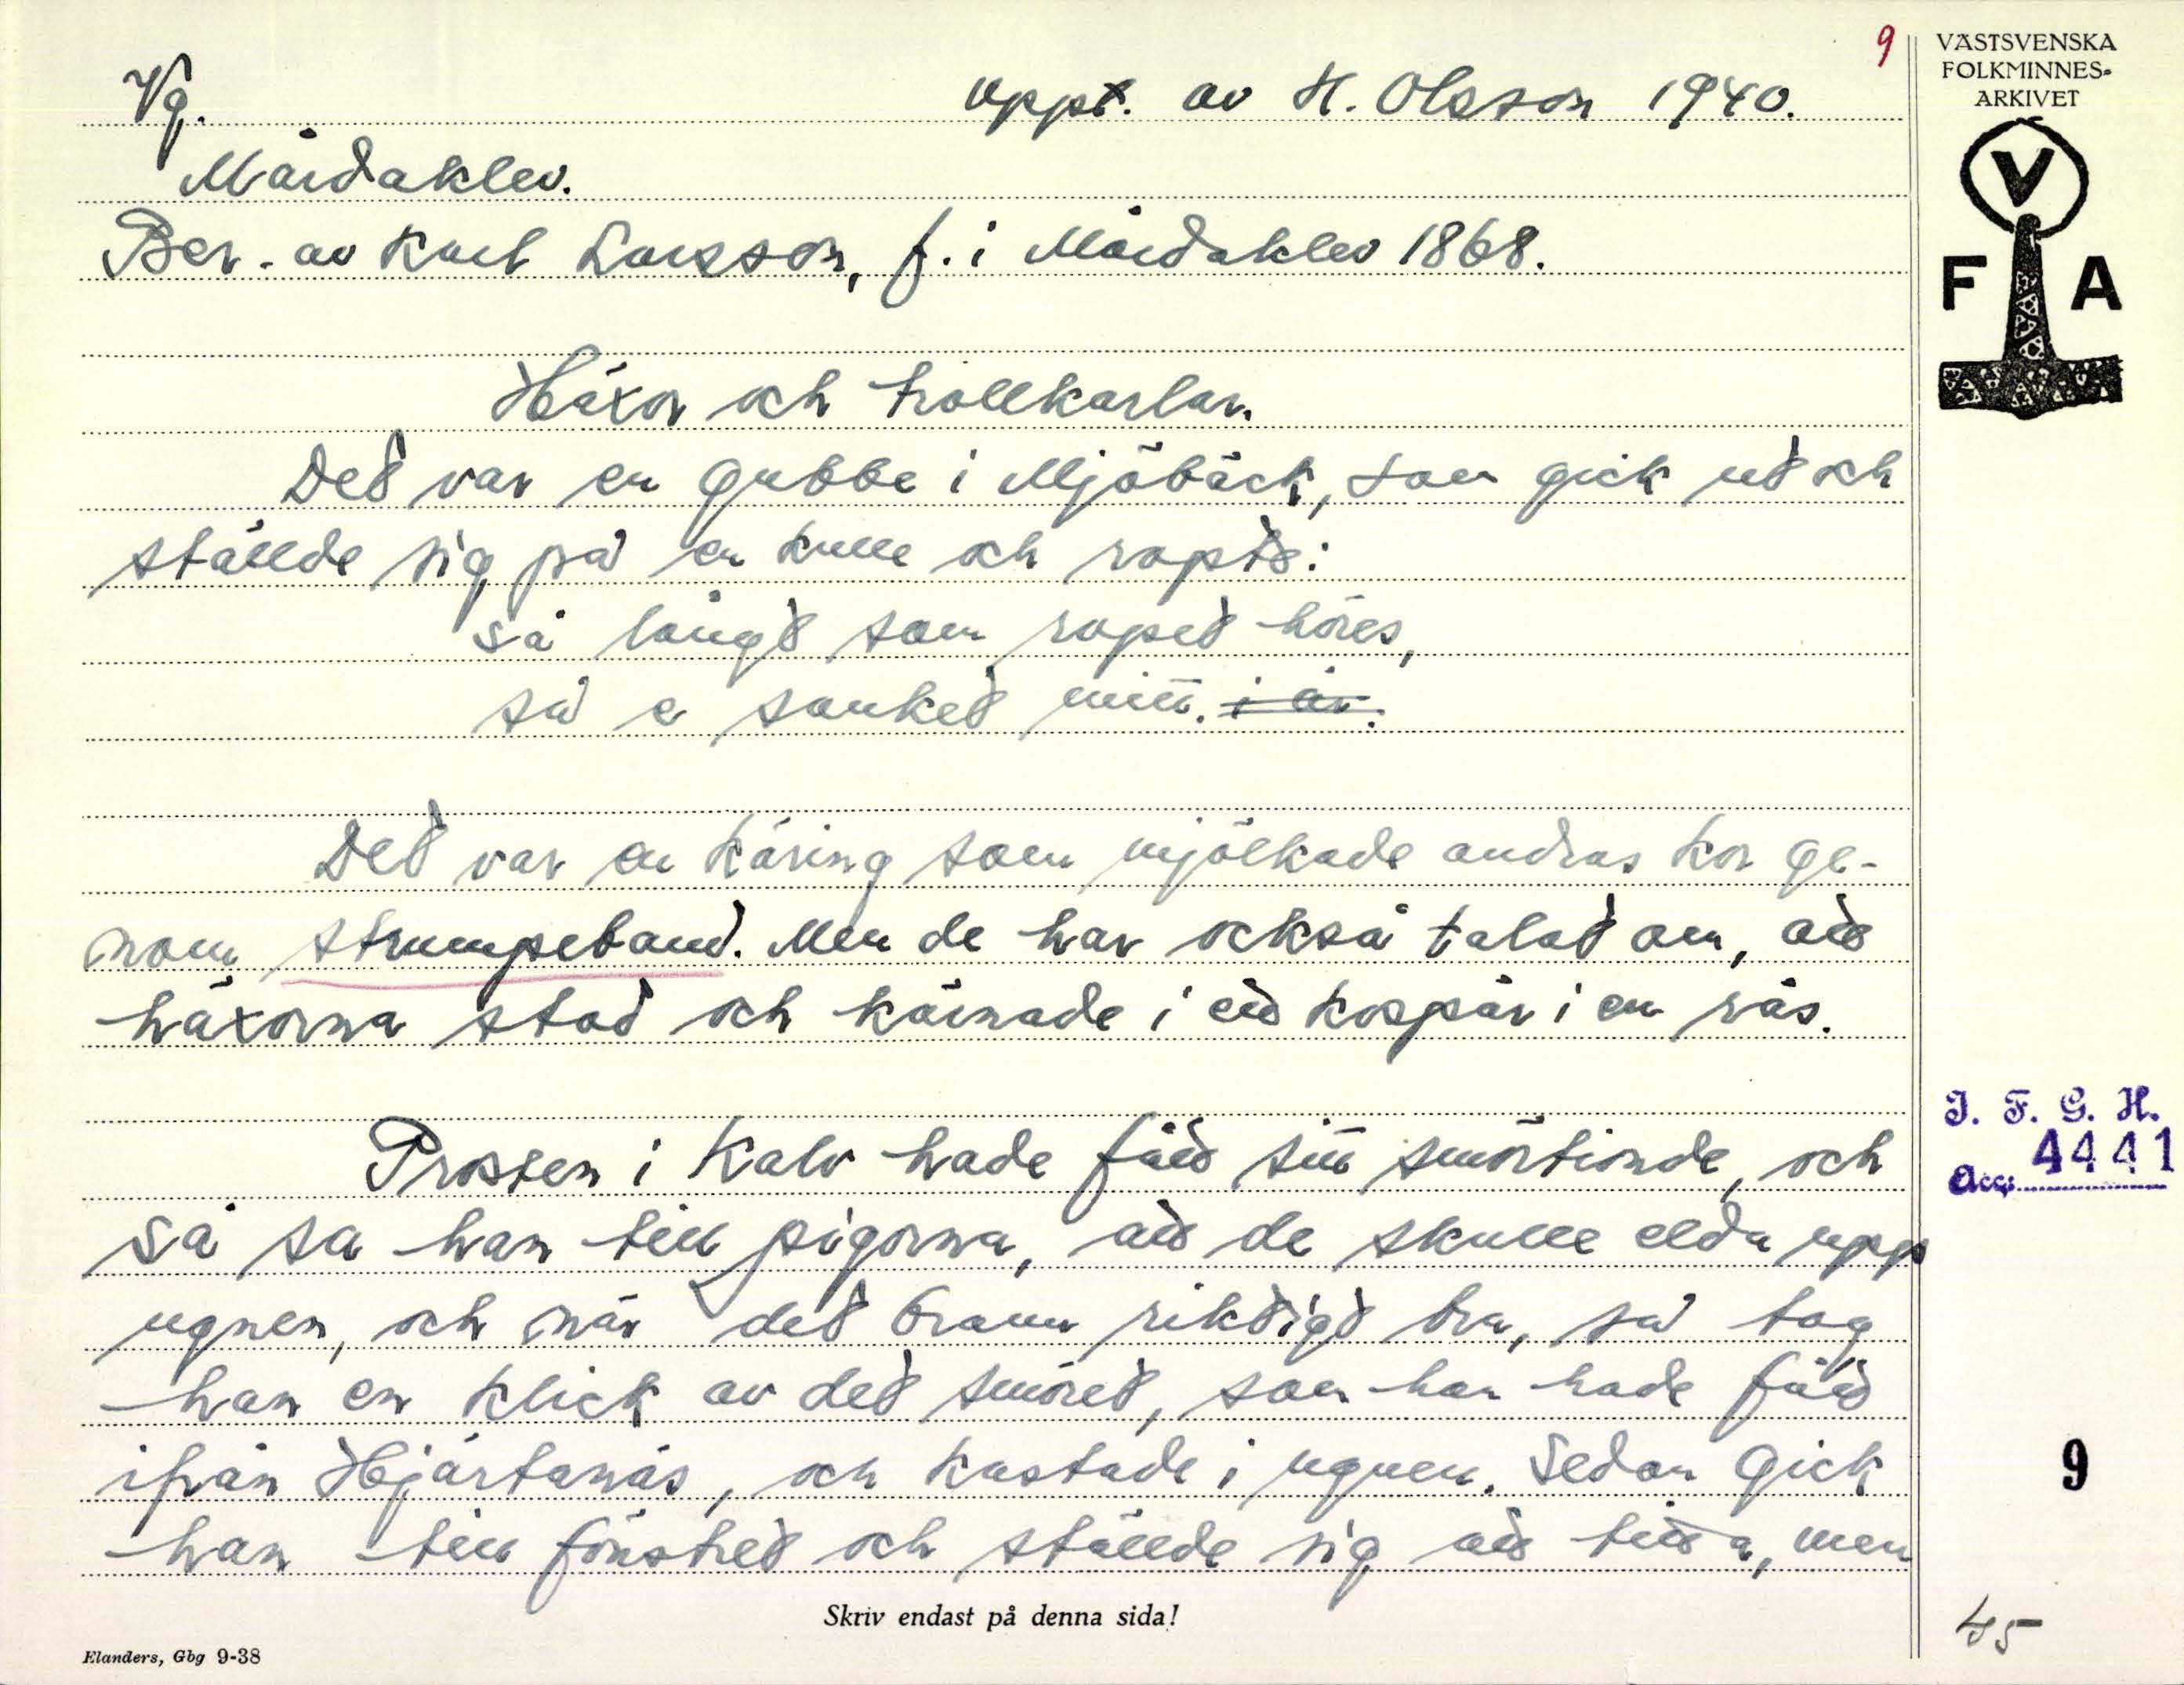 9
VÄSTSVENSKA
FOLKMINNES-
ARKIVET
V
F A
Vg. uppt. av H. Olsson 1940.
Mårdaklev.
Ber. av Karl Larsson, f. i Mårdaklev 1868.
Häxor och trollkarlar.
Det var en gubbe i Mjöbäck, som gick ut och
ställde sig på en kulle och ropte:
så långt som ropet höres,
så e sanket mitt. i år.
Det var en käring som mjölkade andras kor ge-
nom strumpeband. Men de har också talat om, att
häxorna stod och kärnade i ett kospår i en rås.
Prosten i Kalv hade fått sitt smörtionde, och
så sa han till pigorna, att de skulle elda upp
ugnen, och när det brann riktigt bra, så tog
han en klick av det smöret, som han hade fått
ifrån Hjärtanäs, och kastade i ugnen. Sedan gick
han till fönstret och ställde sig att titta, men
I. F. G. H.
Acc. 4441
9
45
Skriv endast på denna sida!
Elanders, Gbg 9-38